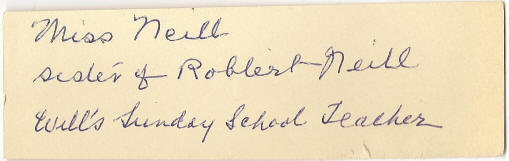 Miss Neill
sister of Roblert Neill
Will's Sunday School Teacher